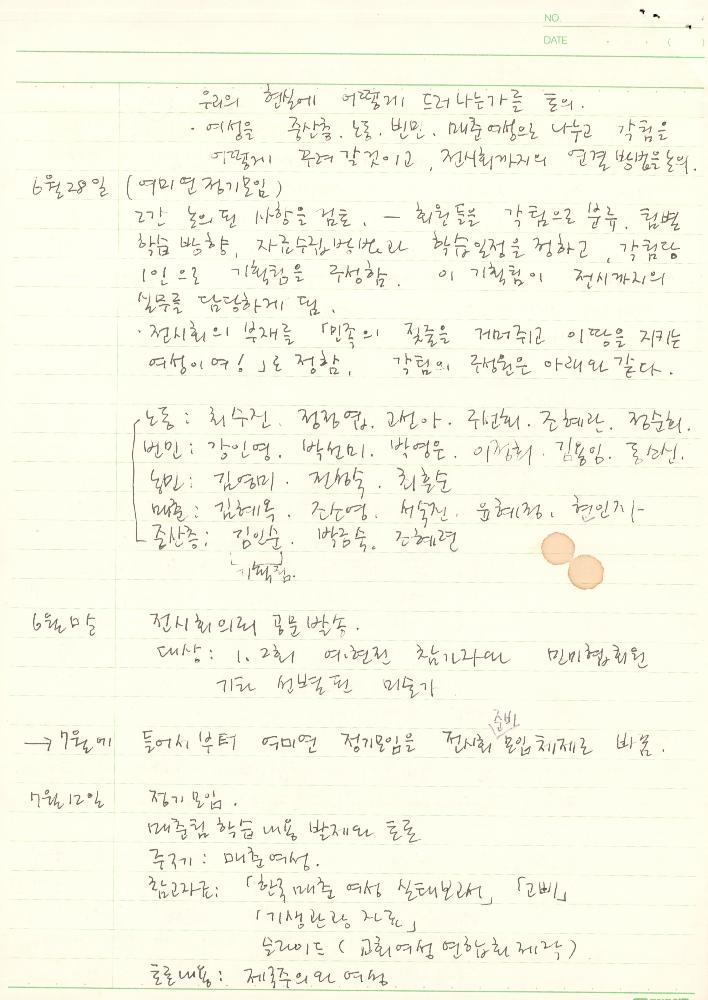 NO.
DATE . . ( )
우리의 현실에 어떻게 드러나는가를 토의.
· 여성을 중산층. 노동. 빈민. 매춘여성으로 나누고 각팀을
어떻게 꾸려 갈것이고, 전시회까지의 연결 방법을 논의.
6월 28일 (여미연 정기모임)
그간 논의된 사항을 검토. — 회원들을 각팀으로 분류. 팀별
학습 방향, 자료수집방법과 학습일정을 정하고, 각팀당
1인으로 기획팀을 구성함. 이 기획팀이 전시까지의
실무를 담당하게 됨.
· 전시회의 부제를 「민족의 젖줄을 거머쥐고 이땅을 지키는
여성이여!」로 정함. 각팀의 구성원은 아래와 같다.
노동: 최수진. 정정엽. 고선아. 구선회. 조혜란. 정순희.
빈민: 강인영. 박선미. 박영은. 이정희. 김용임.
농민: 김영미. 전성숙. 최흥순
매춘: 김혜옥. 조수영. 서숙진. 윤혜정. 현인자
중산층: 김인순. 박금숙. 조혜련
기획팀.
6월 말 전시회의뢰 공문발송.
대상: 1. 2회 여·현전 참가자와 민미협회원
기타 선별된 미술가
준비
→ 7월에 들어서부터 여미연 정기모임을 전시회 모임체제로 바꿈.
7월 12일 정기모임.
매춘팀 학습내용 발제와 토론
주제: 매춘여성.
참고자료: 「한국 매춘 여성 실태보고서」 「고삐」
「기생관광 자료」
슬라이드 (교회여성 연합회 제작)
토론내용: 제국주의와 여성